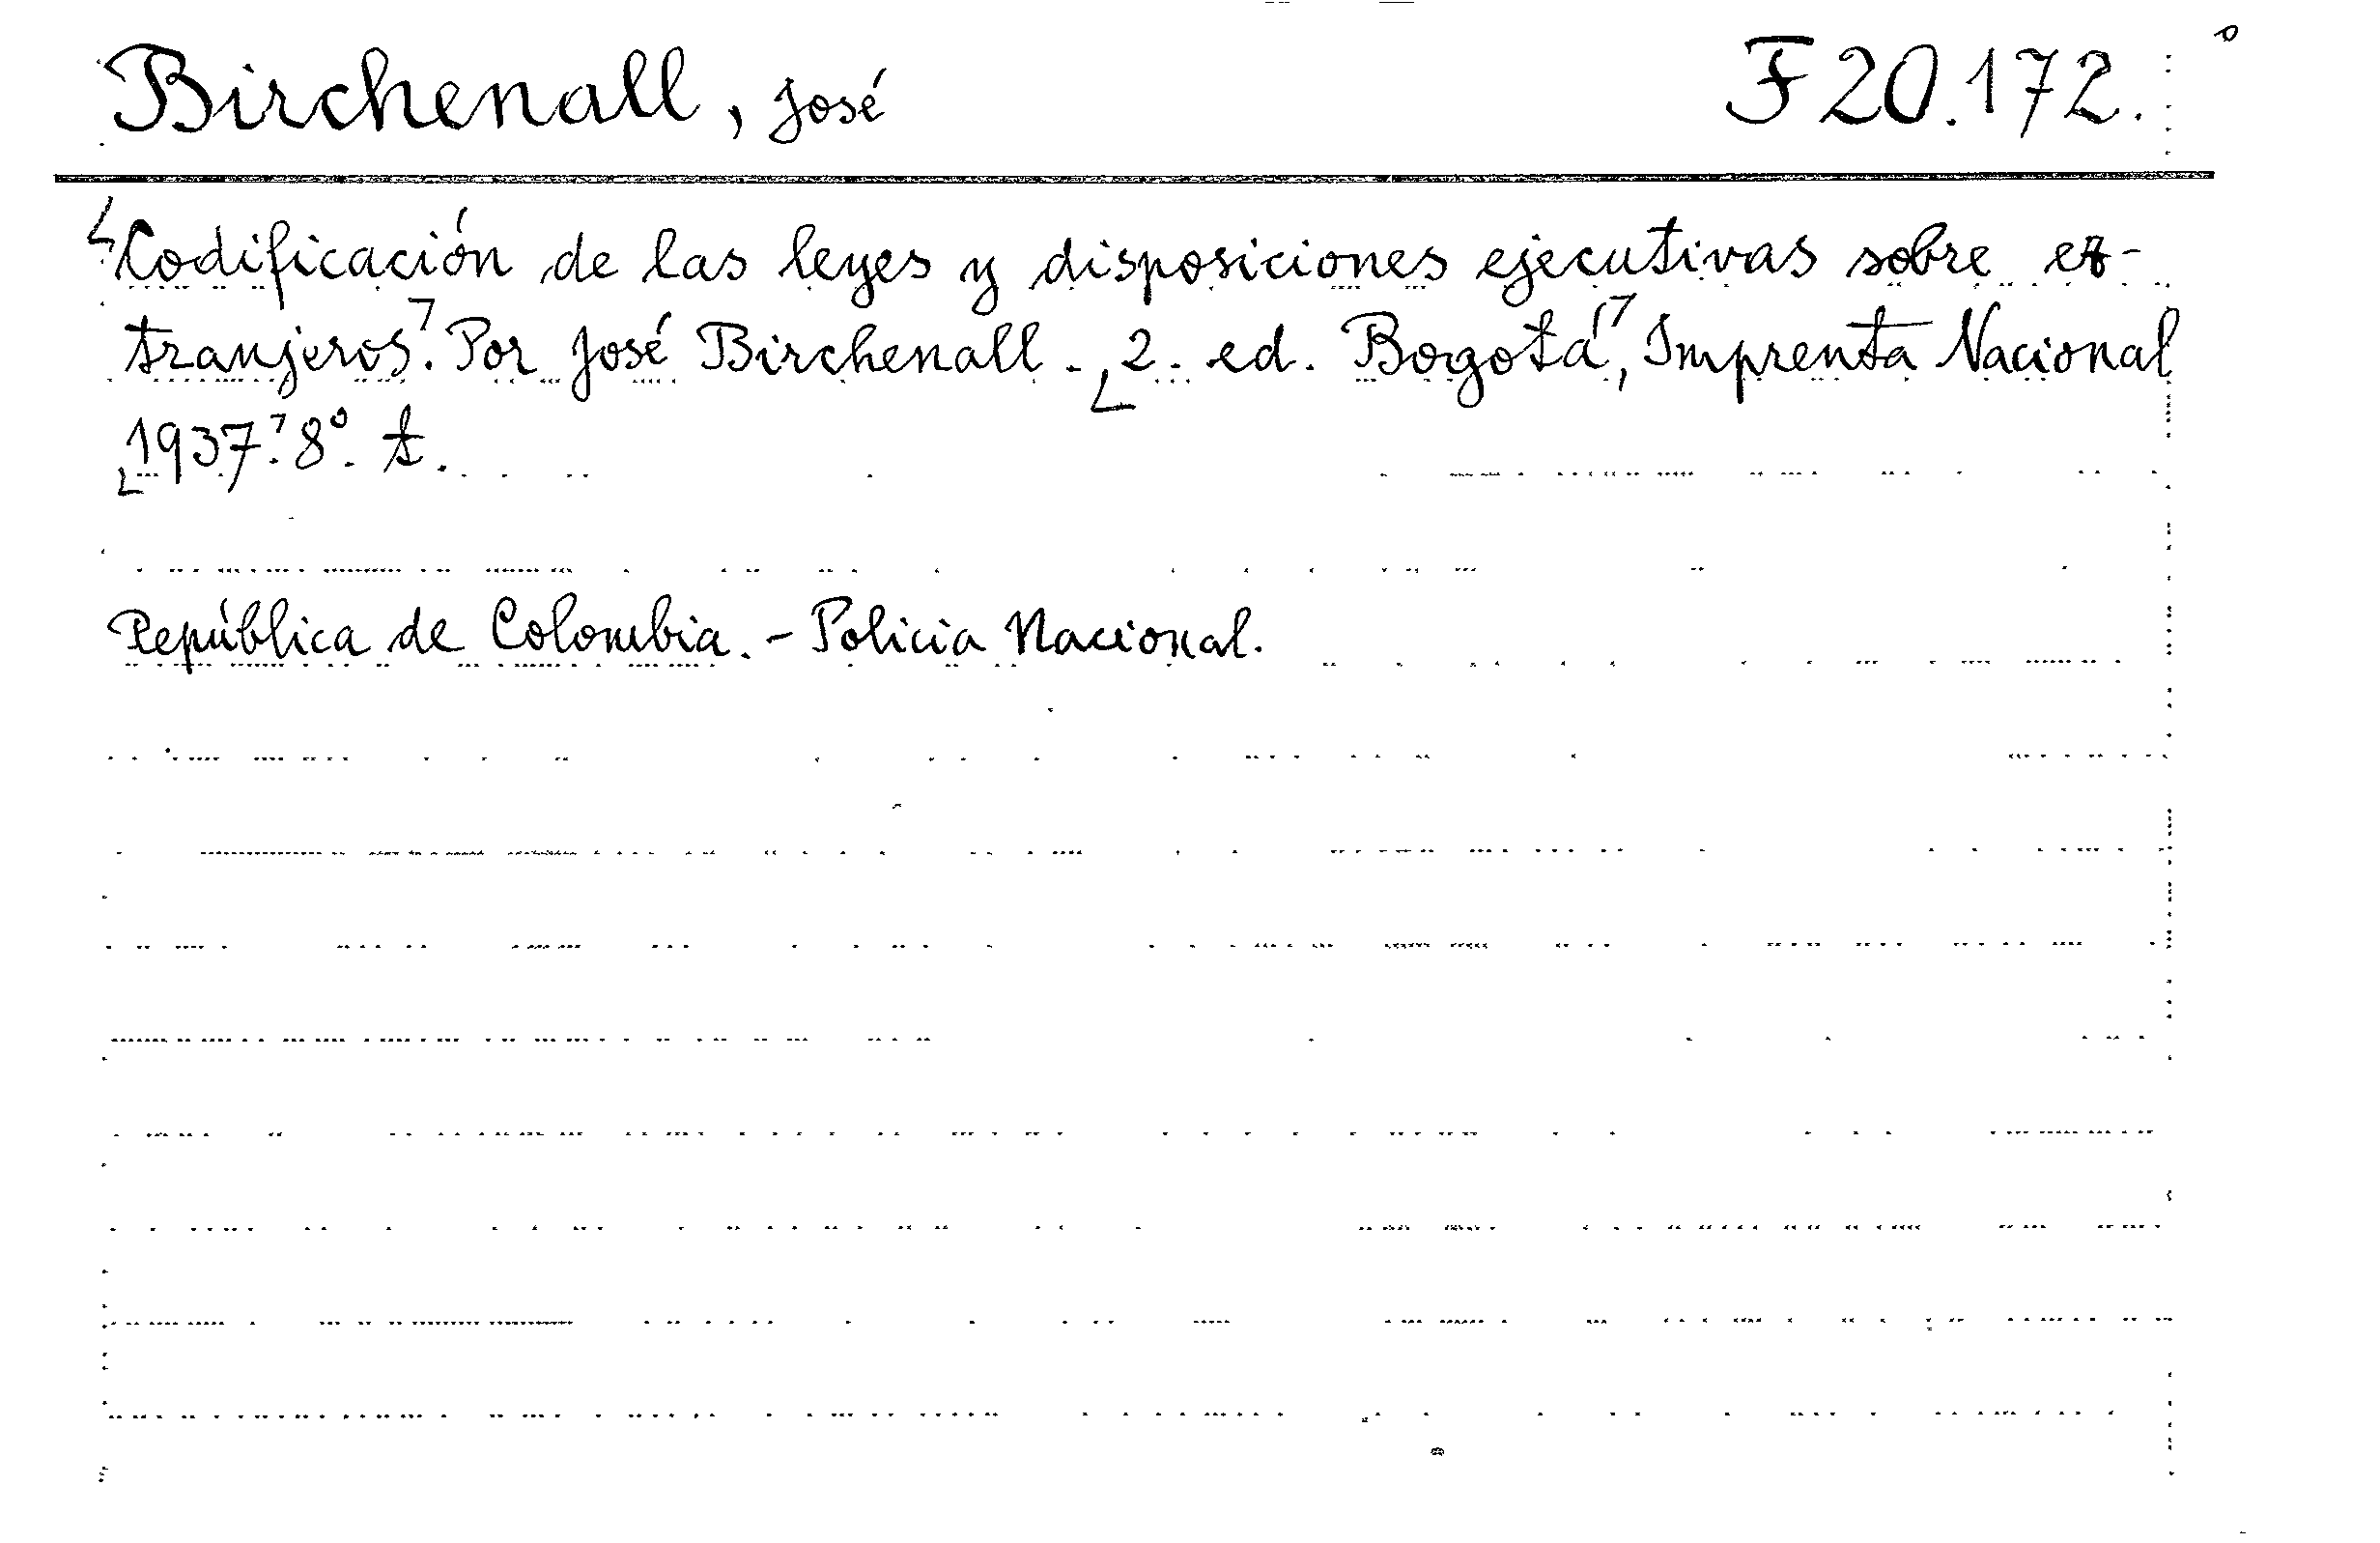 Birchenall, José F 20.172.
⌊Codificación de las leyes y disposiciones ejecutivas sobre ex-
tranjeros⌉. Por José Birchenall. ⌊2. ed. Bogotá⌉, Imprenta Nacional
⌊1937⌉. 8º. t.
República de Colombia. - Policia Nacional.